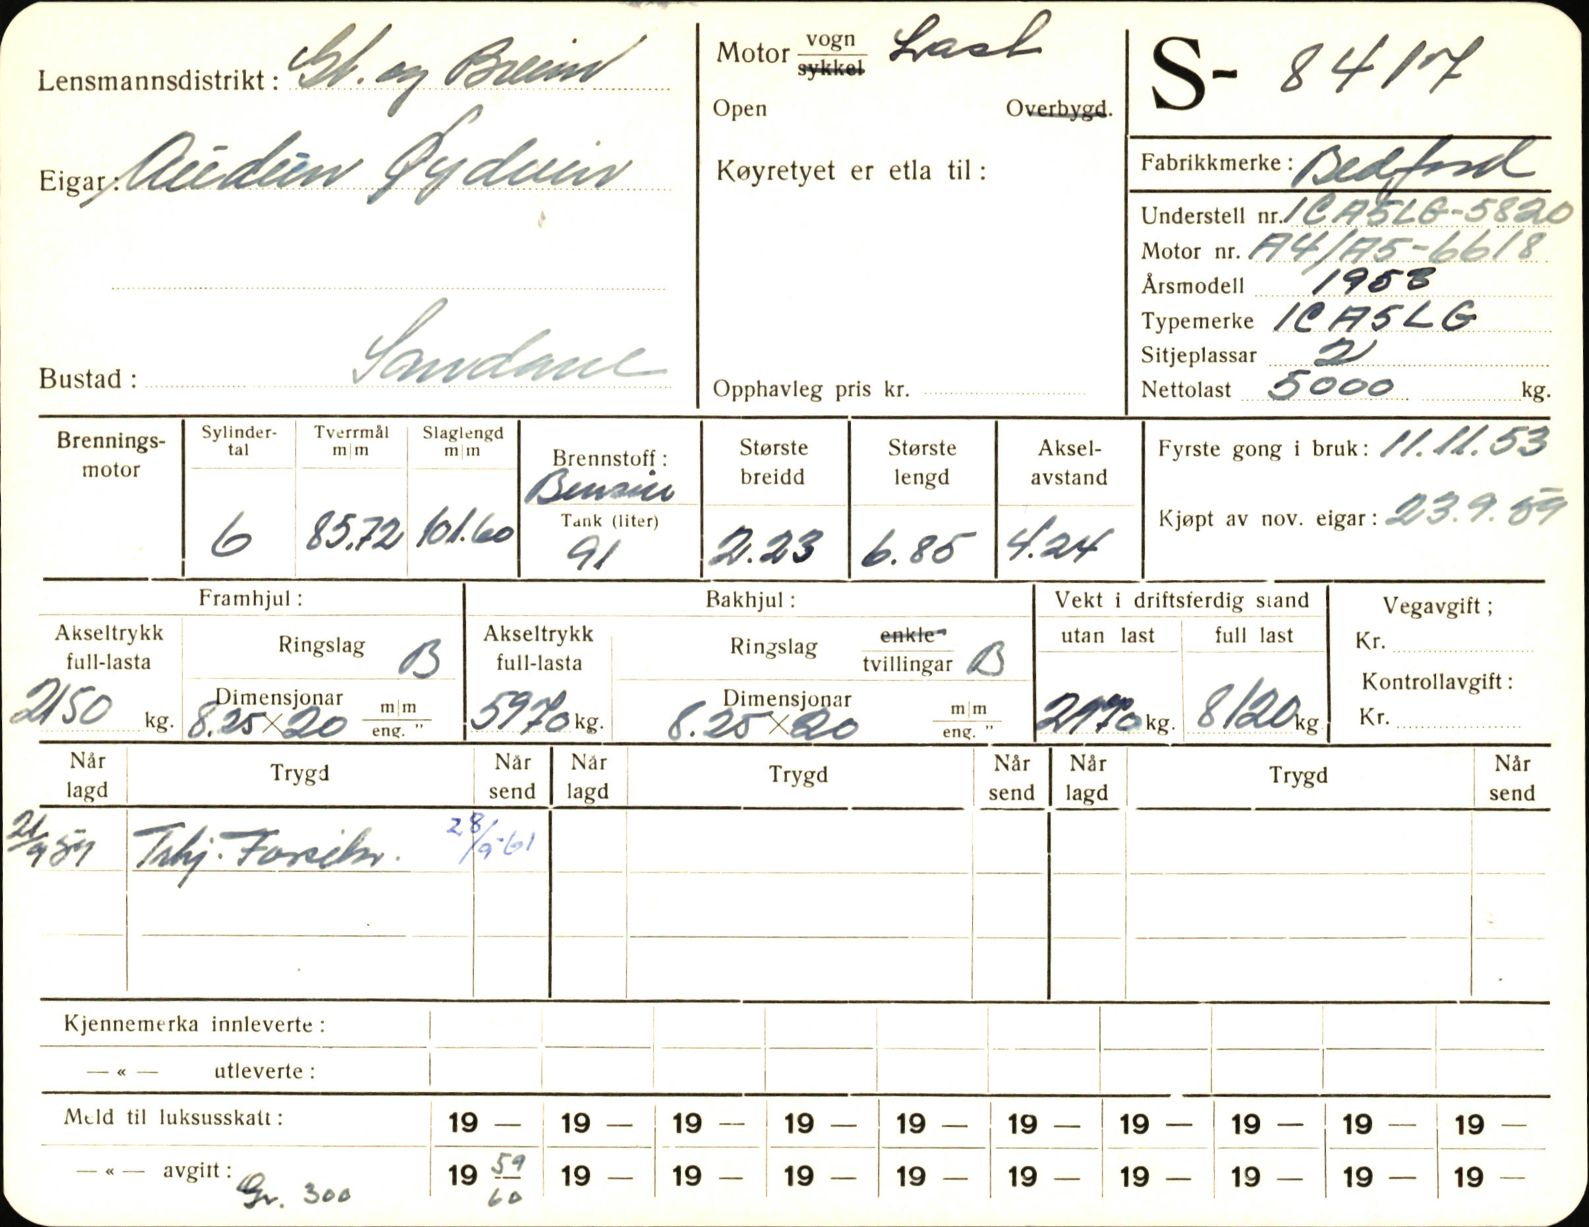 Lensmannsdistrikt: Gl. og Breim
Eigar: Audun Øydvin
Bustad: Sandane
Motor vogn sykkel Last
Open Overbygd.
Køyretyet er etla til:
Opphavleg pris kr.
S- 8417
Fabrikkmerke: Bedford
Understell nr. ICA5LG-5820
Motor nr. A4/A5-6618
Årsmodell 1953
Typemerke ICA5LG
Sitjeplassar 2
Nettolast 5000 kg.
Brennings-
motor
Sylinder-
tal
6
Tverrmål
m|m
85.72
Slaglengd
m|m
101.60
Brennstoff:
Bensin
Tank (liter)
91
Største
breidd
2.23
Største
lengd
6.85
Aksel-
avstand
4.24
Fyrste gong i bruk: 11.11.53
Kjøpt av nov. eigar: 23.9.59
Framhjul:
Akseltrykk
full-lasta
2150 kg.
Ringslag B
Dimensjonar
8.25×20 m|m
eng. "
Bakhjul:
Akseltrykk
full-lasta
5970 kg.
Ringslag enkle
tvillingar B
Dimensjonar
8.25×20 m|m
eng. "
Vekt i driftsferdig stand
utan last full last
2970 kg. 8120 kg
Vegavgift;
Kr.
Kontrollavgift:
Kr.
Når
lagd
Trygd
Når
send
Når
lagd
Trygd
Når
send
Når
lagd
Trygd
Når
send
21/9 59 Trhj. Forsikr. 28/9-61
Kjennemerka innleverte:
— « — utleverte:
Meld til luksusskatt: 19 — 19 — 19 — 19 — 19 — 19 — 19 — 19 — 19 — 19 —
— « — avgift: 19 59/60 19 — 19 — 19 — 19 — 19 — 19 — 19 — 19 — 19 —
Gr. 300